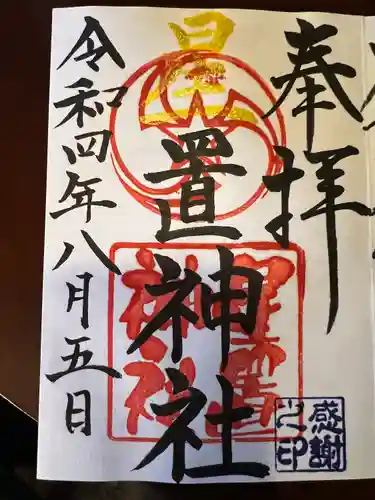 奉拝
星置神社
令和四年八月五日
星置神社
感謝之印